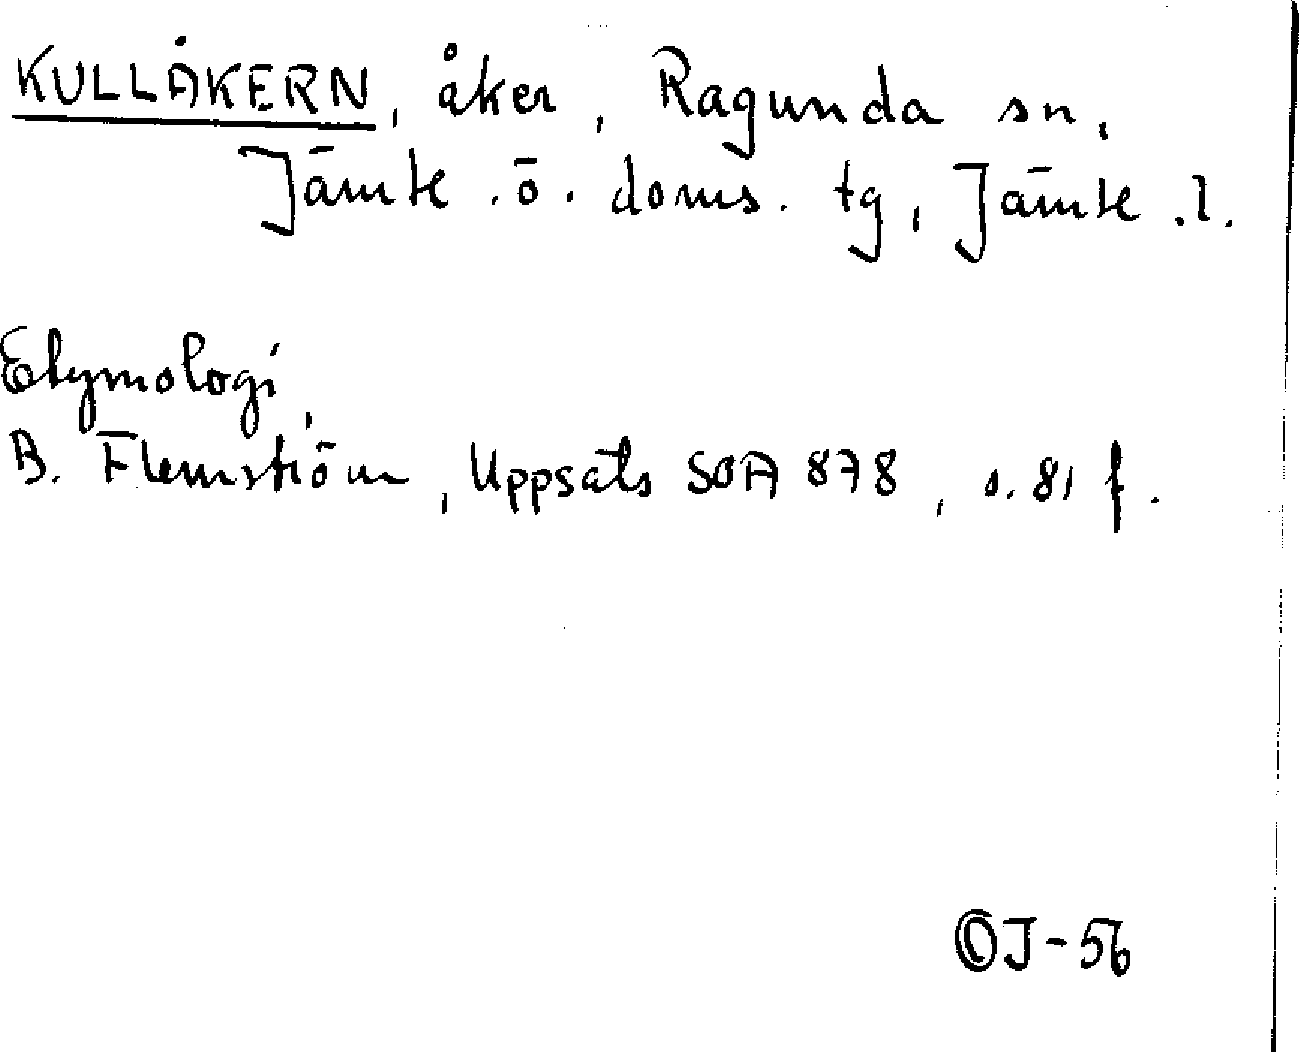 KULLÅKERN, åker, Ragunda sn,
Jämtl. ö. doms. tg, Jämtl. l.
Etymologi,
B. Flemström, Uppsats SOA 878, s. 81 f.
OJ-56